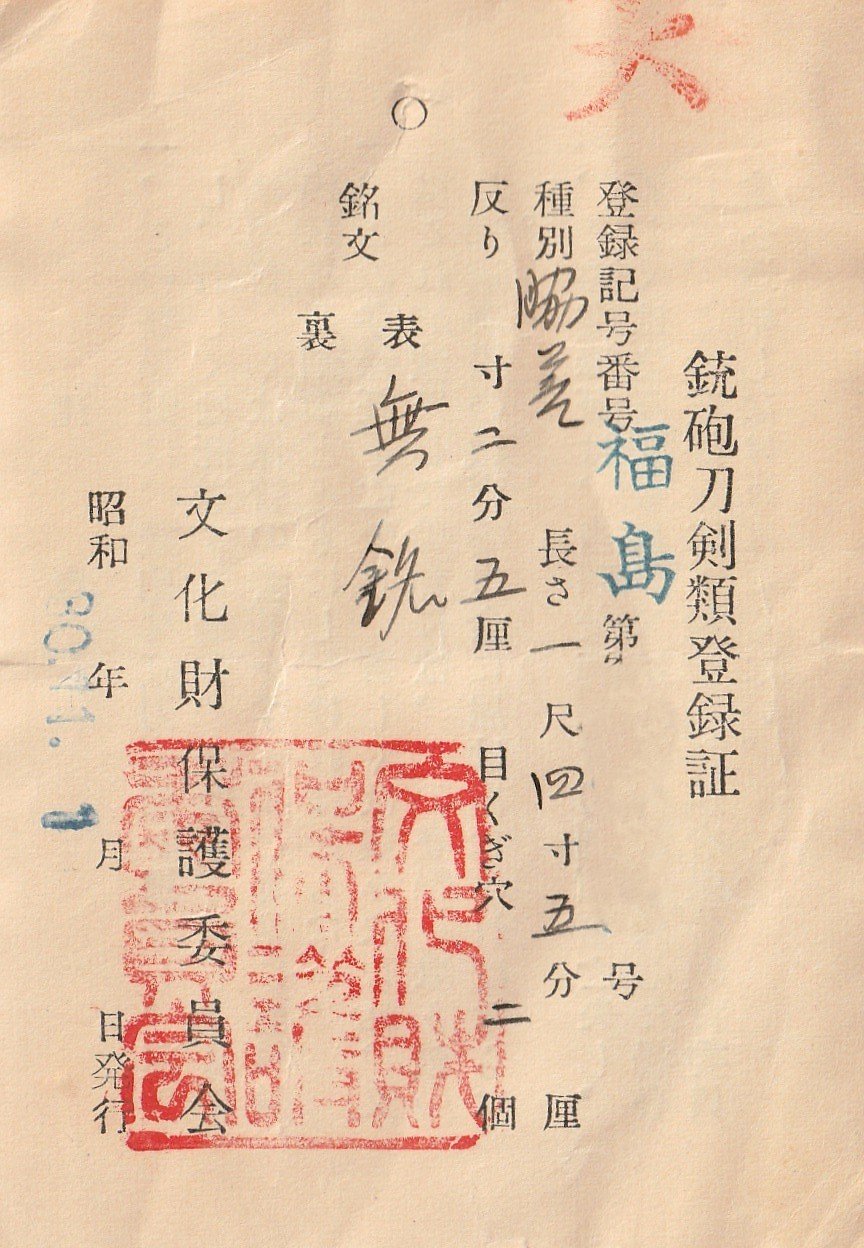 銃砲刀剣類登録証
登録記号番号 福島 第 号
種別 脇差 長さ 一尺四寸五分 厘
反り 寸二分五厘 目くぎ穴 二個
銘文
表 無銘
裏
文化財保護委員会
昭和 年 月 日発行
30.11.1
文化財保護委員会